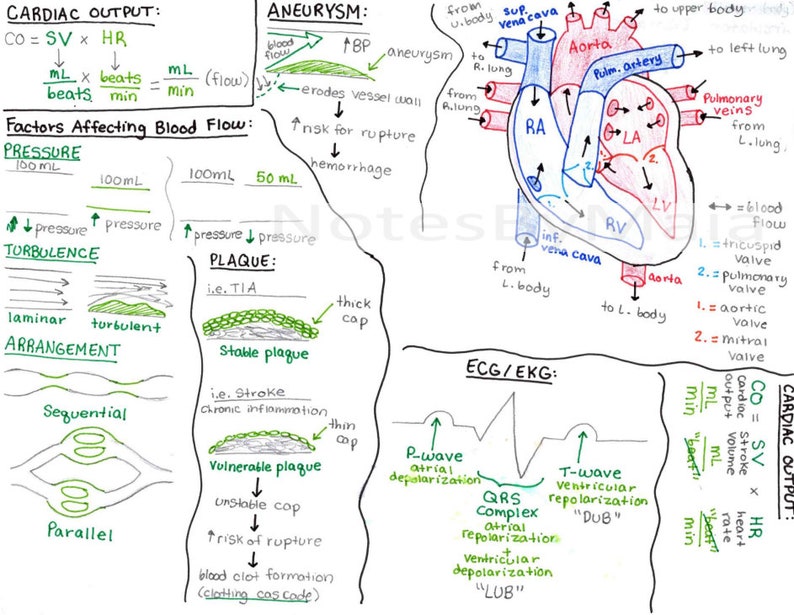 CARDIAC OUTPUT:
CO = SV x HR
mL/beats x beats/min = mL/min (flow)
ANEURYSM:
blood flow
↑BP
aneurysm
erodes vessel wall
↑ risk for rupture
hemorrhage
from U.body
sup. vena cava
Aorta
to upper body
to R.lung
Pulm. artery
to left lung
from R.lung
Pulmonary veins
from L.lung
RA
LA
1.
2.
1.
2.
RV
LV
inf. vena cava
from L.body
aorta
to L.body
↔ = blood flow
1. = tricuspid valve
2. = pulmonary valve
1. = aortic valve
2. = mitral valve
Factors Affecting Blood Flow:
PRESSURE
100mL
100mL
100mL
50 mL
↓ pressure
↑ pressure
↑ pressure
↓ pressure
TURBULENCE
laminar
turbulent
ARRANGEMENT
Sequential
Parallel
PLAQUE:
i.e. TIA
thick cap
Stable plaque
i.e. Stroke
chronic inflammation
thin cap
Vulnerable plaque
unstable cap
↑ risk of rupture
blood clot formation
(clotting cascade)
ECG/EKG:
P-wave
atrial
depolarization
QRS
Complex
atrial
repolarization
+
ventricular
depolarization
"LUB"
T-wave
ventricular
repolarization
"DUB"
CARDIAC OUTPUT:
CO = SV x HR
cardiac output
stroke volume
heart rate
mL/min
mL/"beat"
"beat"/min
NotesByMaia